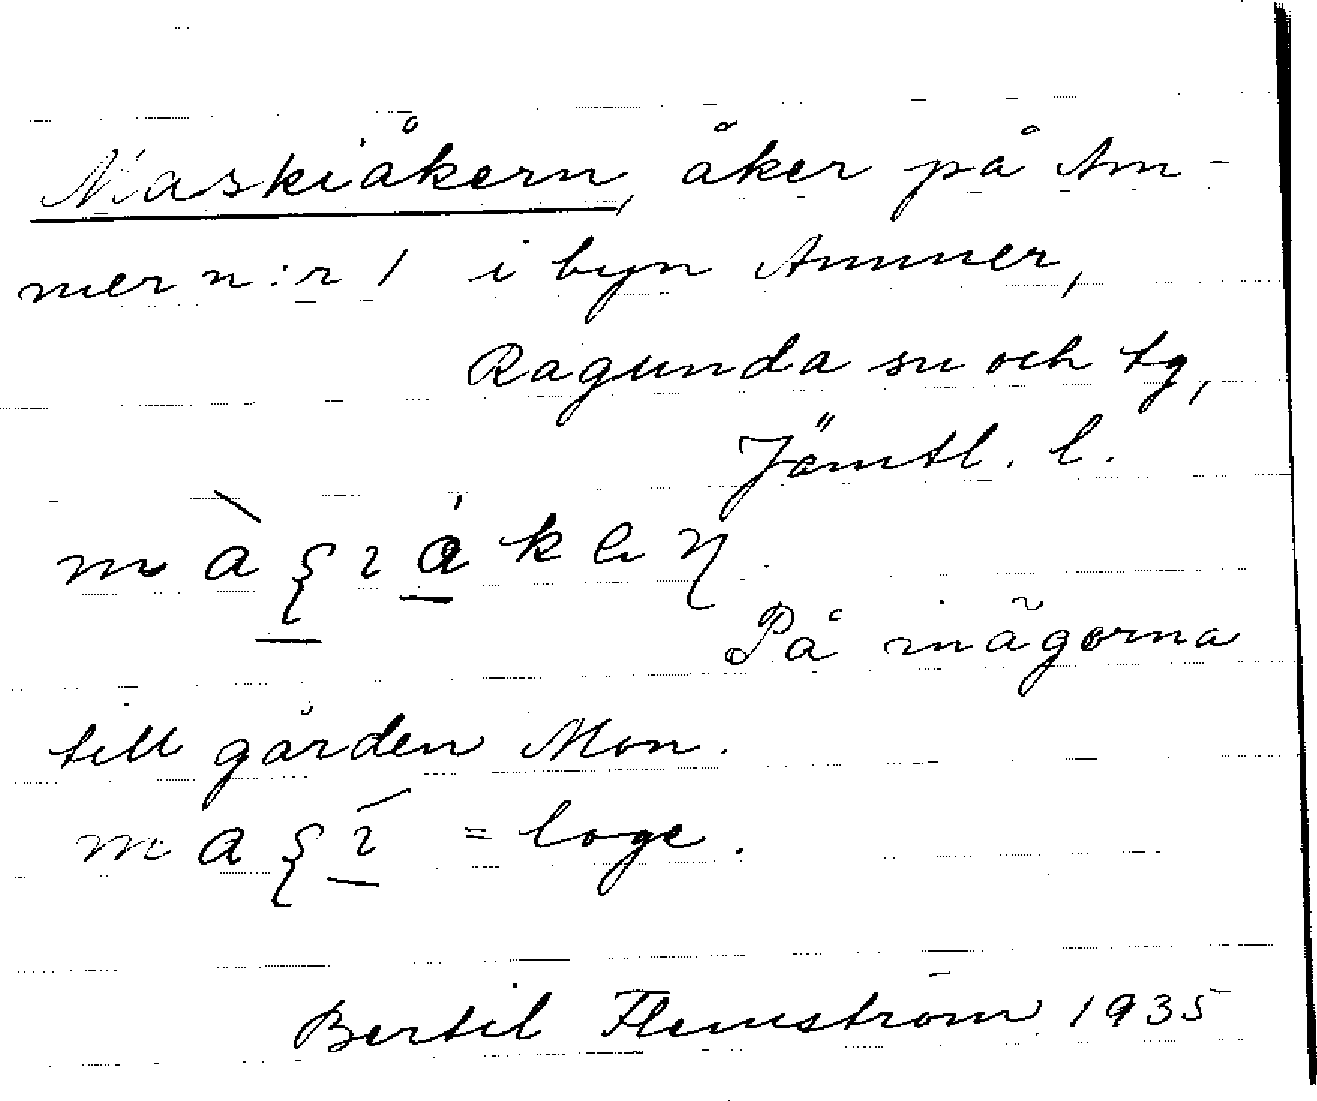 Maskiåkern, åker på Am-
mer n:r 1 i byn Ammer,
Ragunda sn och tg,
Jämtl. l.
På inägorna
till gården Mon.
= loge.
Bertil Flemström 1935